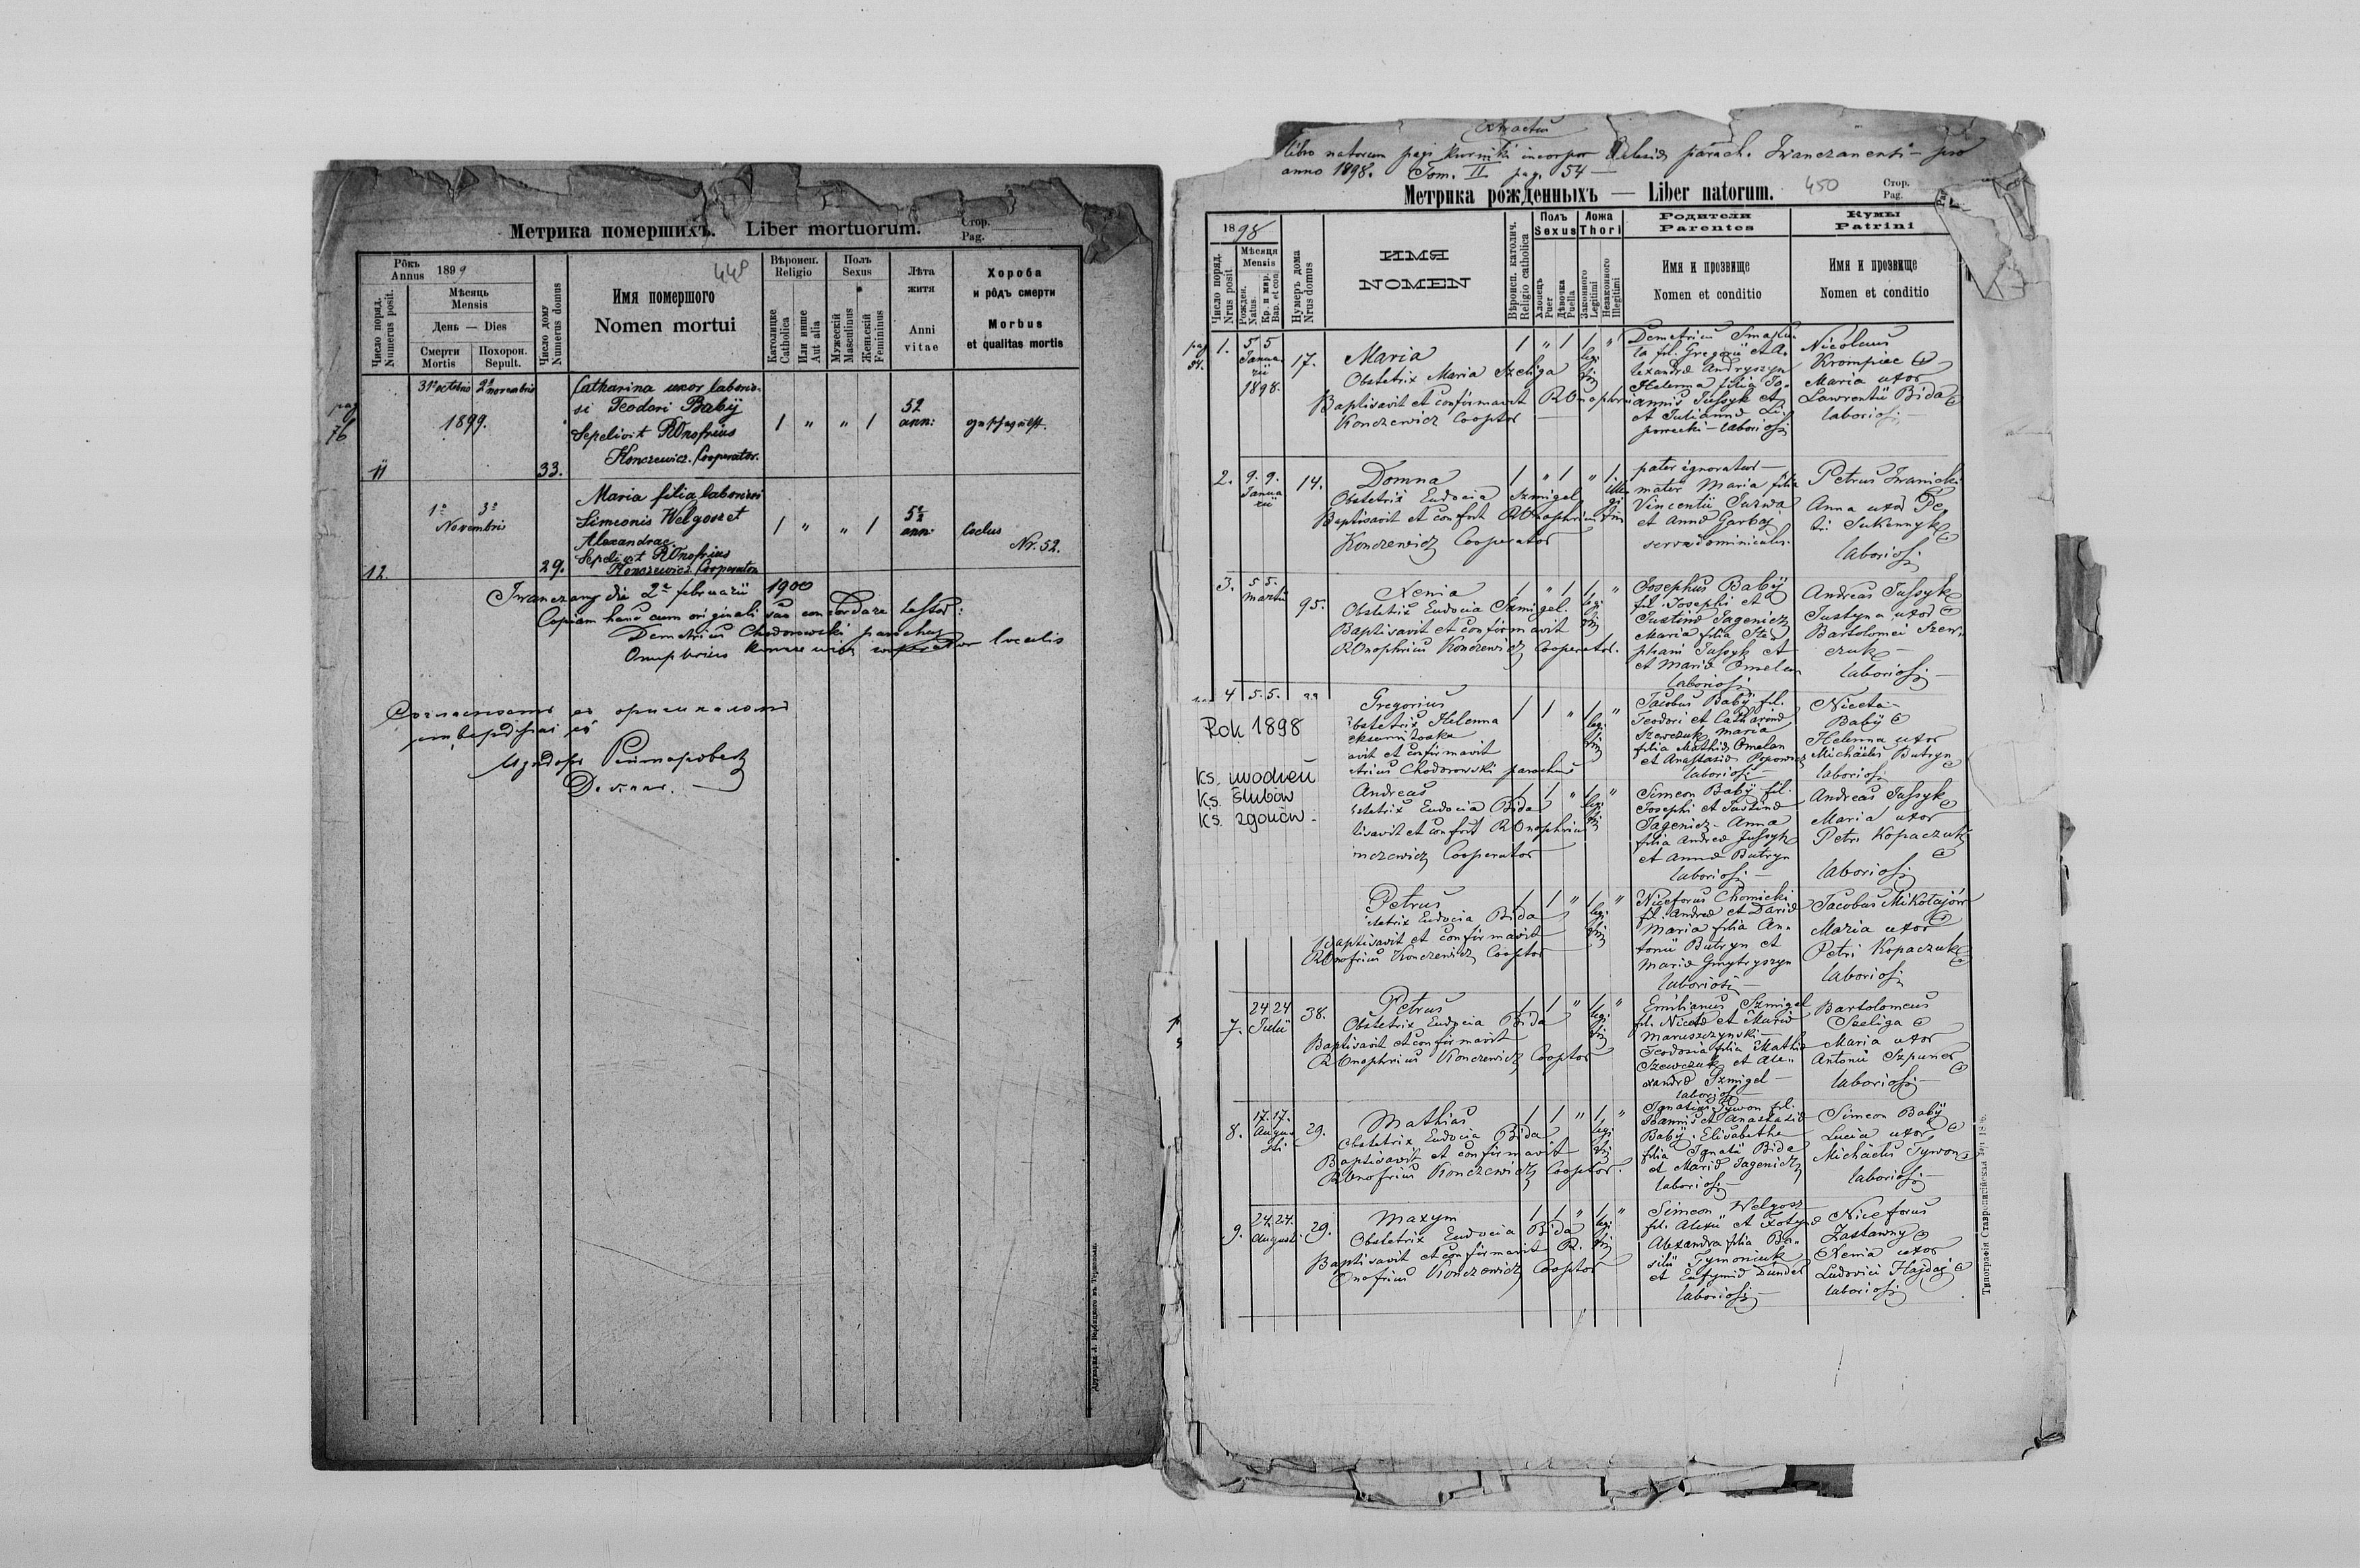 Метрика помершихъ. Liber mortuorum.
Стор.
Pag.
449
Рôкъ
Annus 1899
Мѣсяць
Mensis
День — Dies
Смерти
Mortis
Похорон.
Sepult.
Число поряд.
Numerus posit.
Число дому
Numerus domus
Имя помершого
Nomen mortui
Вѣроисп.
Religio
Католицке
Catholica
Или инше
Aut alia
Полъ
Sexus
Мужескій
Masculinus
Женьскій
Femininus
Лѣта
житя
Anni
vitae
Хороба
и рôдъ смерти
Morbus
et qualitas mortis
pag
76
11
31º octobris 2º novembris
1899.
33.
Catharina uxor laborio-
si Teodori Babÿ
Sepelivit ROnofrius
Konczewicz. Cooperator.
1 " " 1
52
ann:
12
1º 3º
Novembris
29.
Maria filia laboriosi
Simeonis Welgosz et
Alexandrae.
Sepelivit ROnofrius
Konczewicz Cooperator
1 " " 1
5½
ann:
Nr. 52.
Iwanczany die 2º februarii 1900
Copiam hanc cum originali suo concordare testor:
Demetrius Chodorowski parochus
Onuphrius Konczewicz cooperator localis
Друкарня Л. Вербицкого въ Терноп.
libro natorum pagi Kurniki incorpor parach. Iwanczanensi — pro
anno 1898. Tom. II pag. 54 —
Метрика рожденныхъ — Liber natorum.
450
Стор.
Pag.
1898
Число поряд.
Nrus posit.
Мѣсяця
Mensis
Рожден.
Natus.
Кр. и мир.
Bap. et con.
Нумеръ дома
Nrus domus
ИМЯ
NOMEN
Вѣроисп. католич.
Religio catholica
Полъ
Sexus
Хлопецъ
Puer
Дѣвочка
Puella
Ложа
Thori
Законного
Legitimi
Незаконного
Illegitimi
Родители
Parentes
Имя и прозвище
Nomen et conditio
Кумы
Patrini
Имя и прозвище
Nomen et conditio
pag
54.
1.
5 5
Janua-
rii
1898.
17.
Maria
Obstetrix Maria Szeliga
Baptisavit et confirmavit ROnophrius
Konczewicz Cooptor
1 " 1 1 "
legi
tim
fil. Gregorii et A-
lexandrae Andryszyn
Helenna filia Jo-
annis Jussyk et
et Julianna Li
porecki — laboriosi
Nicolaus
Krompiec
Maria uxor
Lawrentii Bida
laboriosi —
2.
9. 9.
Janua
rii
14.
Domna
Obstetrix Eudocia Szmigel
Baptisavit et confirt ROnophrius
Konczewicz Cooperator
1 " 1 " 1
ille
gi
tim
pater ignoratus —
mater Maria filia
Vincentii
et Annae Garbaj
serva dominicalis.
Petrus Iwanicki
Anna uxor Pe-
tri Sukennyk
laboriosi
3.
5 5.
martii
95.
Xenia
Obstetrix Eudocia Szmigel.
Baptisavit et confirmavit
ROnophrius Konczewicz Cooperator.
1 " 1 1 "
legi
tim
Josephus Babÿ
fil. Josephi et
Justinae Jagenicz
Maria filia Ste-
phani Jussyk et
et Mariae Omelan
laboriosi
Andreas Jussyk
Justyna uxor
Bartolomei Szew-
czuk —
laboriosi —
4
5. 5.
Gregorius
bstetrix Helenna
avit et confirmavit
etrius Chodorowski parochus
1 1 " 1 "
legi
tim
Jacobus Babÿ fil.
Teodori et Catharinae
Szewczuk Maria
filia Mathiae Omelan
et Anastasiae Popowicz
laboriosi —
Niceta
Babÿ
Helenna uxor
Michaelis Butryn
laboriosi
Rok 1898
Ks. urodzeń
Ks. ślubów
Ks. zgonów.
Andreas
bstetrix Eudocia Bida
tisavit et confirt ROnophrius
nczewicz Cooperator
1 1 " 1 "
legi
tim
Simeon Babÿ fil.
Josephi et Justinae
Jagenicz — Anna
filia Andreae Jussyk
et Annae Butryn
laboriosi —
Andreas Jussyk
Maria uxor
Petri Kopaczuk
laboriosi
Petrus
stetrix Eudocia Bida
Baptisavit et confirmavit
ROnofrius Konczewicz Cooptor
1 1 " 1 "
legi
tim
Niceforus Chomicki
fil. Andreae et Dariae
Maria filia An-
tonii Butryn et
Mariae Gmytryszyn
laboriosi —
Jacobus Mikołajów
Maria uxor
Petri Kopaczuk
laboriosi
7.
24 24
Julii
38.
Petrus
Obstetrix Eudocia Bida
Baptisavit et confirmavit
ROnophrius Konczewicz Cooptor
1 1 " 1 "
legi
tim
Emilianus Szmigel
fil. Nicetae et Mariae
Maruszczynski —
Teodosia filia Mathiae
Szewczuk et Ale-
xandrae Szmigel —
laboriosi
Bartolomeus
Szeliga
Maria uxor
Antonii Szpuner
laboriosi —
8.
17. 17.
Augu-
sti
29.
Mathias
Obstetrix Eudocia Bida
Baptisavit et confirmavit
ROnofrius Konczewicz Cooptor.
1 1 " 1 "
legi
tim
Ignatius Tywon fil.
Joannis et Anastasiae
Babÿ. Elisabetha
filia Ignatii Bida
et Mariae Jagenicz
laboriosi —
Simeon Babÿ
Lucia uxor
Michaelis Tywon
laboriosi —
9.
24. 24.
Augusti.
29.
Maxym
Obstetrix Eudocia Bida
Baptisavit et confirmavit R.
Onofrius Konczewicz Cooptor
1 1 " 1 "
legi
tim
Simeon Welgosz
fil. Alexii et
Alexandra filia Ba-
silii Tymoniuk
et Eufymiae Dundel
laboriosi —
Niceforus
Zastawny
Xenia uxor
Ludovici Hajdaj
laboriosi